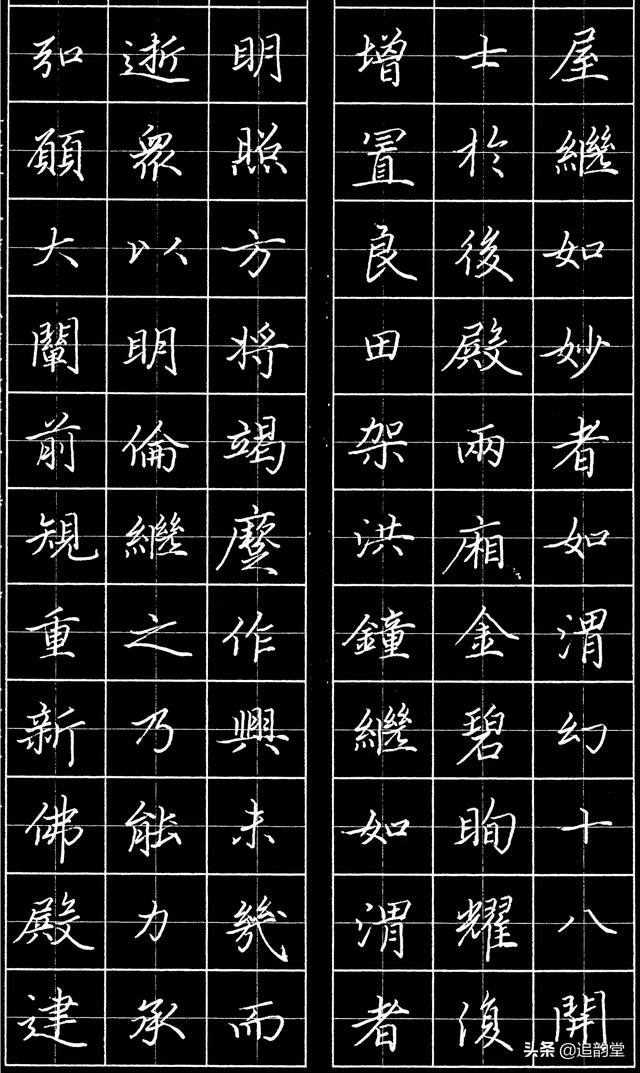 屋繼如妙者如渭幻十八開
士於後殿兩廂金碧眴耀復
增置良田架洪鐘繼如渭者
明照方將竭作興未幾而
逝衆以明倫繼之乃能力承
弘願大闡前規重新佛殿建
头条 @追韵堂